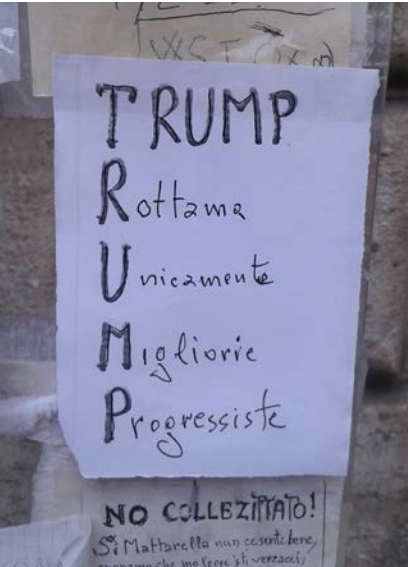 TRUMP
Rottama
Unicamente
Migliorie
Progressiste
NO COLLEZITTATO!
Si Mattarella nun ce sente bene,
che